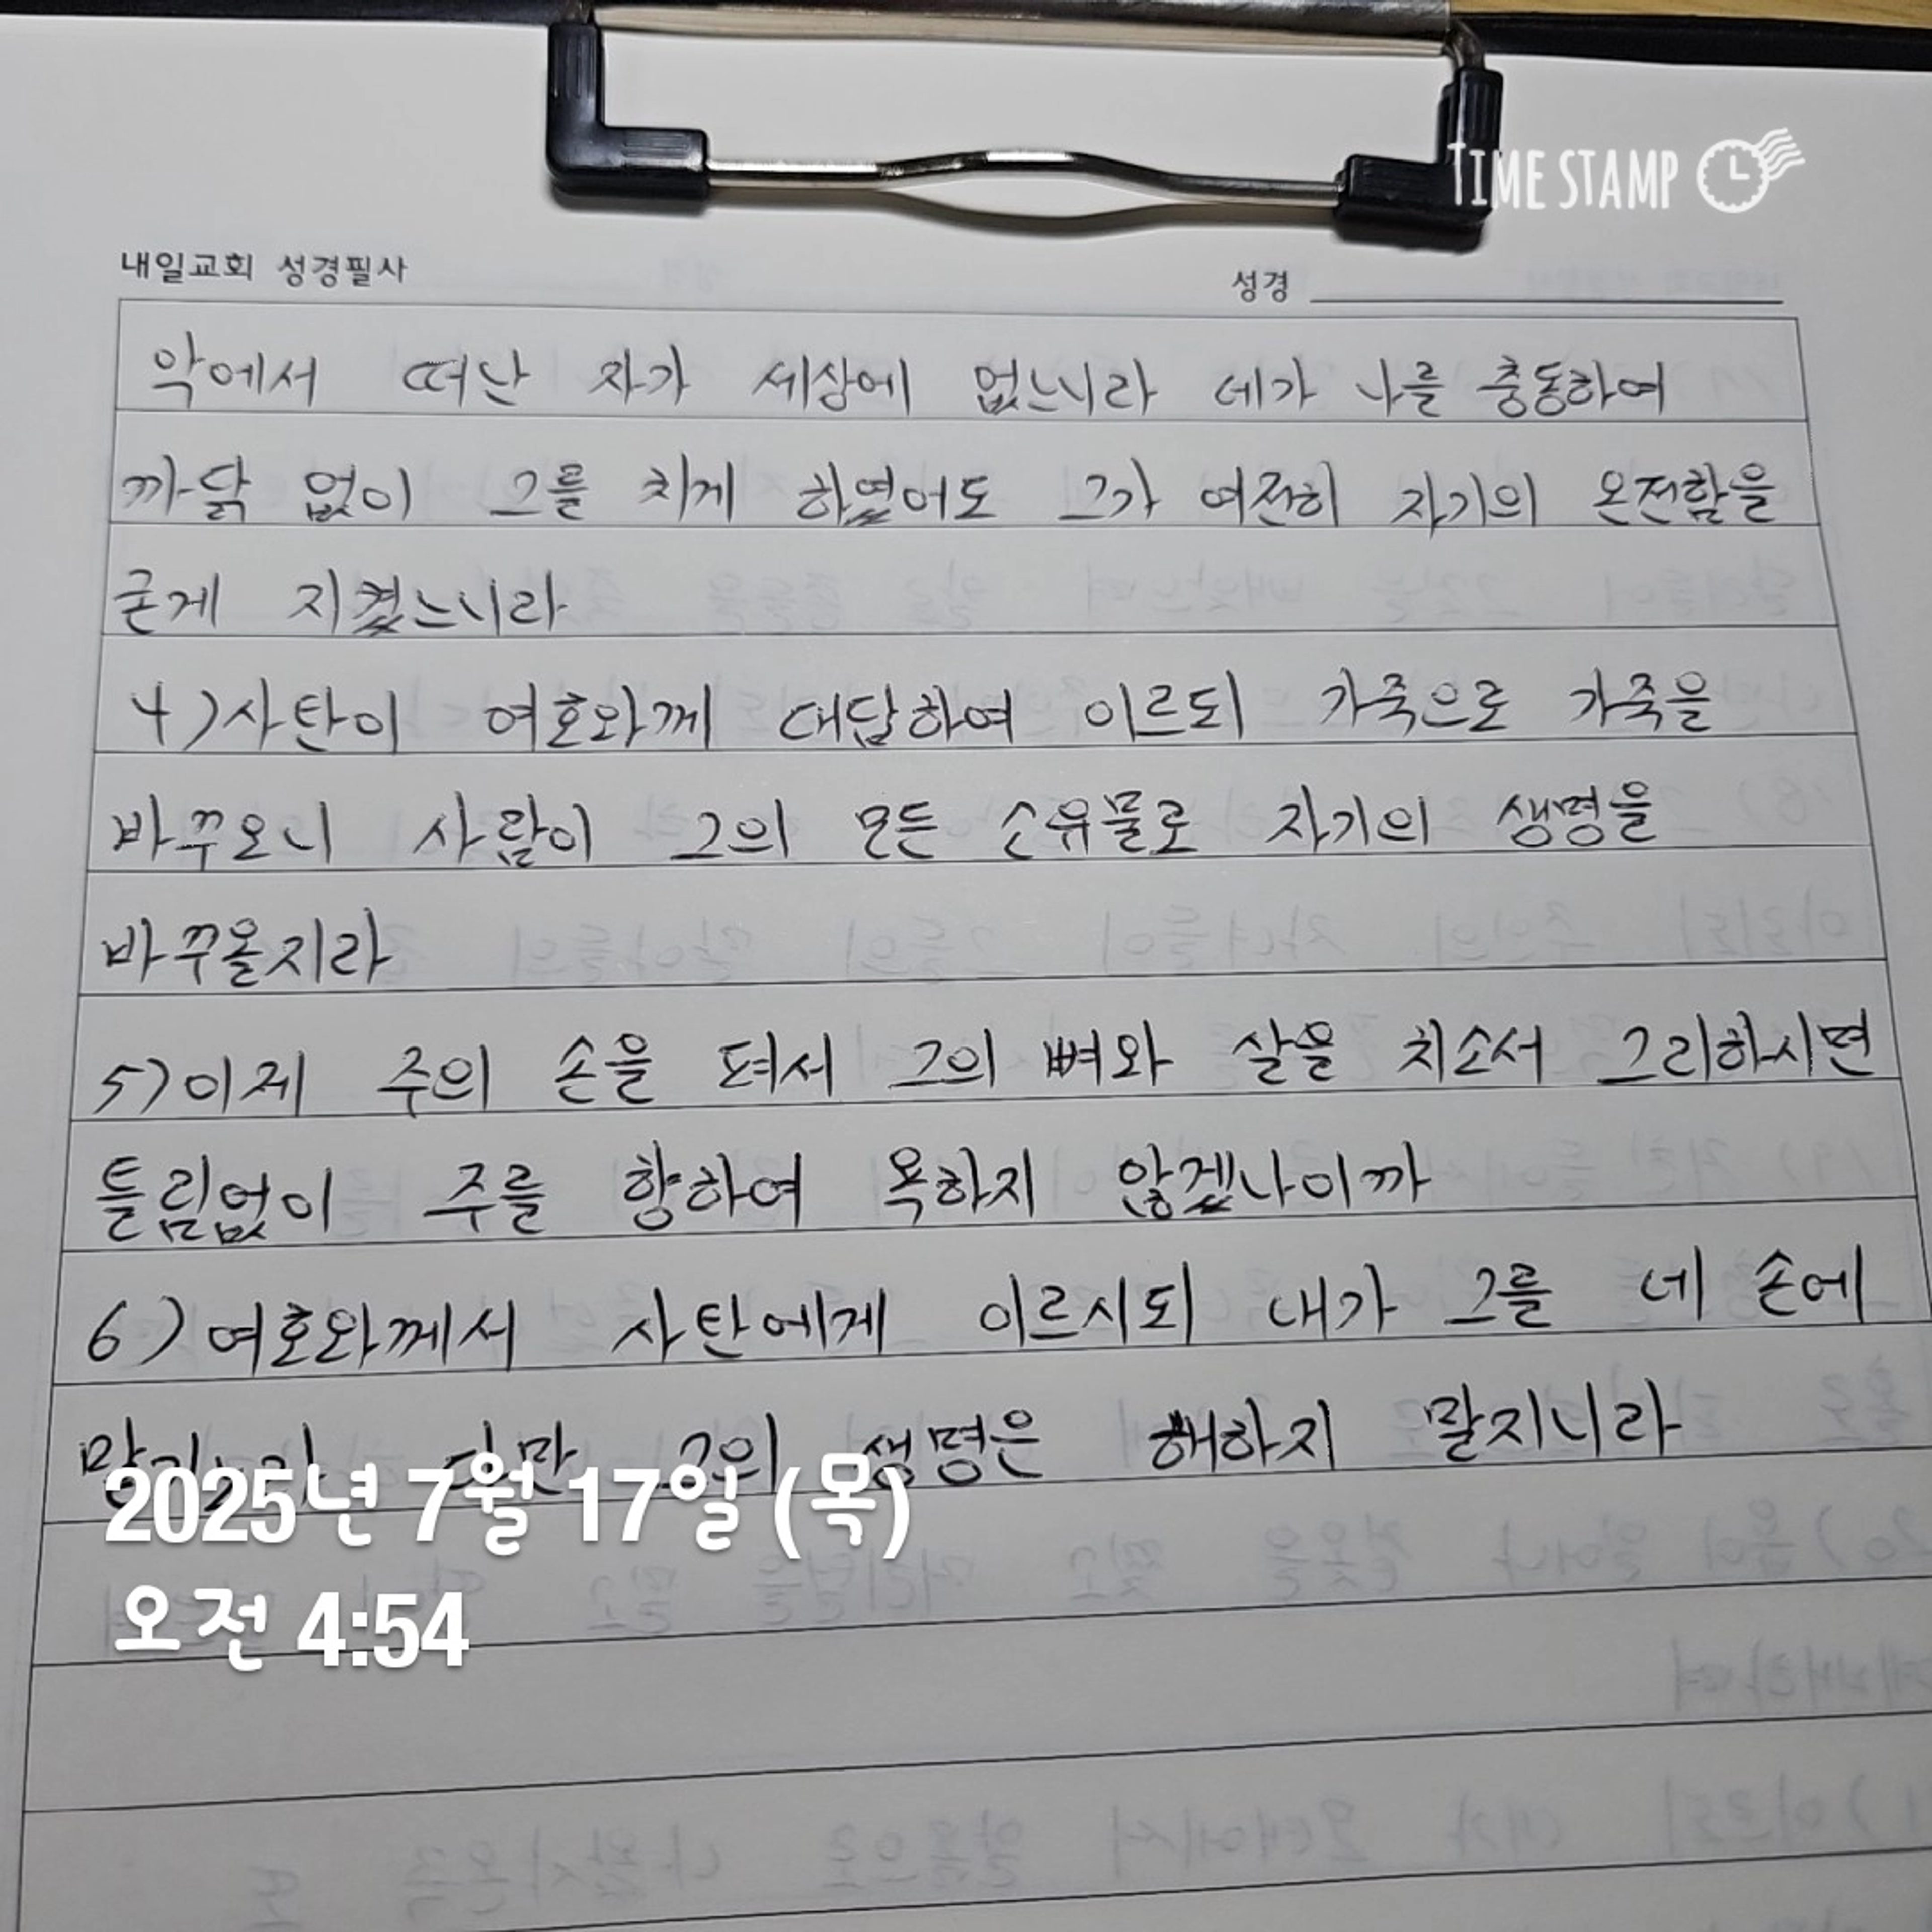 TIME STAMP
내일교회 성경필사
성경
악에서 떠난 자가 세상에 없느니라 네가 나를 충동하여
까닭 없이 그를 치게 하였어도 그가 여전히 자기의 온전함을
굳게 지켰느니라
4) 사탄이 여호와께 대답하여 이르되 가죽으로 가죽을
바꾸오니 사람이 그의 모든 소유물로 자기의 생명을
바꾸올지라
5) 이제 주의 손을 펴서 그의 뼈와 살을 치소서 그리하시면
틀림없이 주를 향하여 욕하지 않겠나이까
6) 여호와께서 사탄에게 이르시되 내가 그를 네 손에
맡기노라 다만 그의 생명은 해하지 말지니라
2025년 7월 17일 (목)
오전 4:54